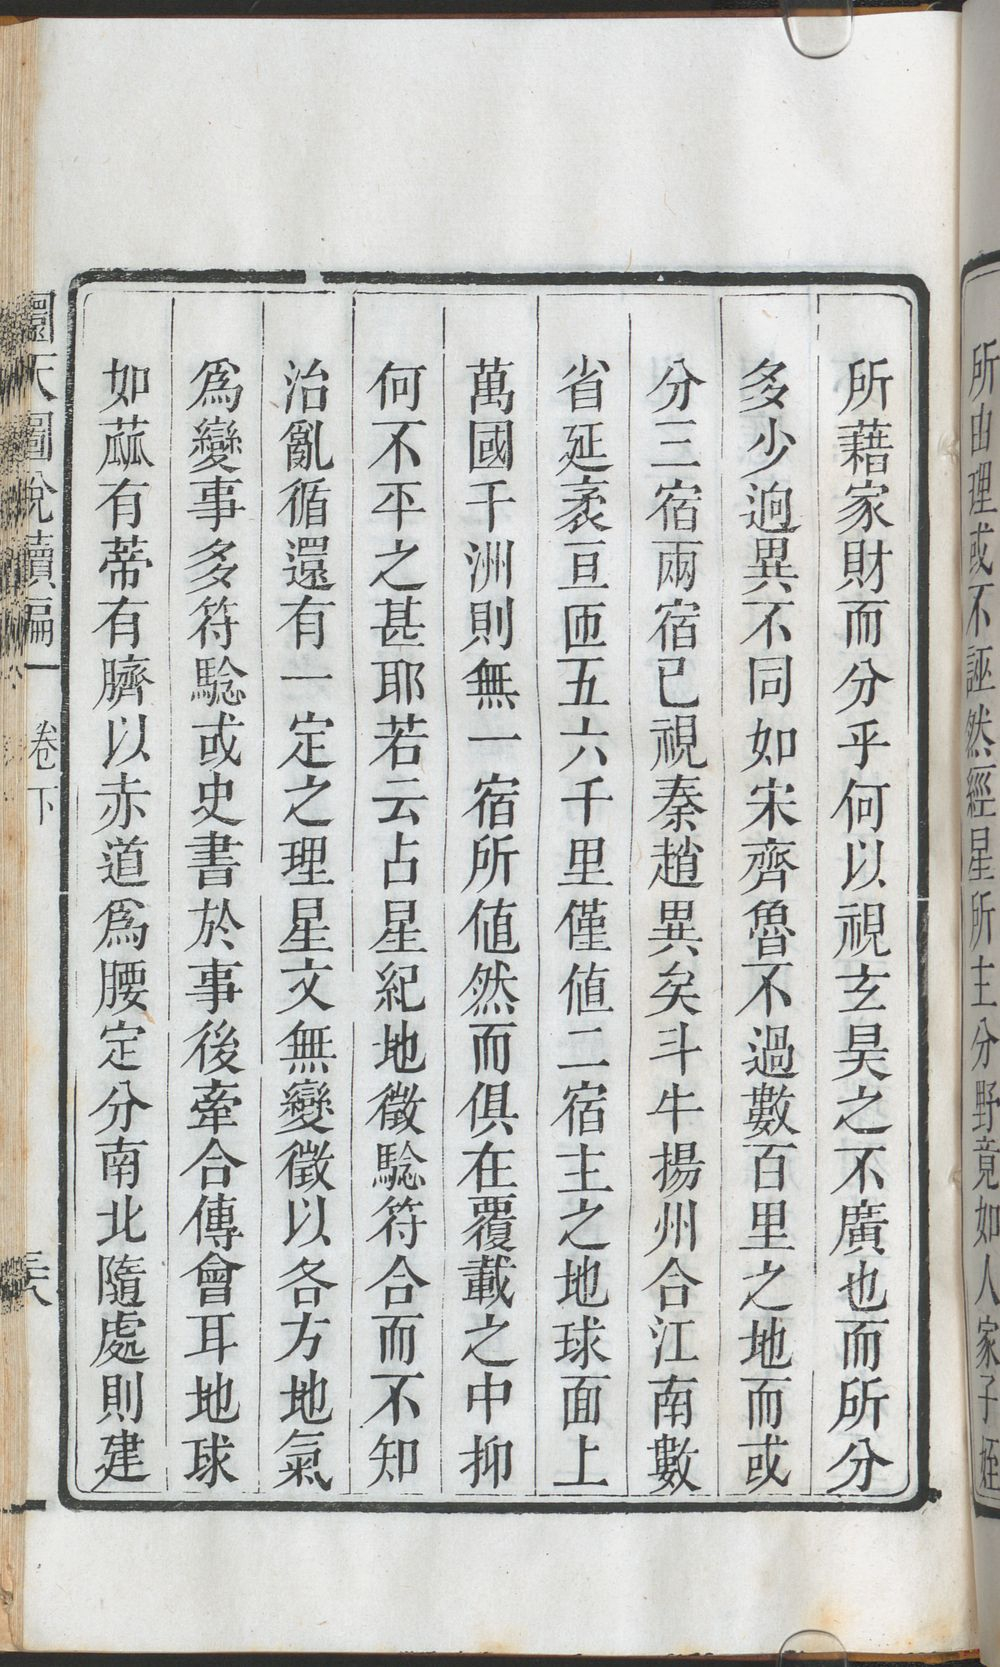 所由理或不誣然經星所主分野竟如人家子姪
所藉家財而分乎何以視玄昊之不廣也而所分
多少逈異不同如宋齊魯不過數百里之地而或
分三宿兩宿已視秦趙異矣斗牛揚州合江南數
省延袤亘匝五六千里僅値二宿主之地球面上
萬國千洲則無一宿所値然而俱在覆載之中抑
何不平之甚耶若云占星紀地徵騐符合而不知
治亂循還有一定之理星文無變徵以各方地氣
爲變事多符騐或史書於事後牽合傳會耳地球
如苽有蒂有臍以赤道爲腰定分南北隨處則建
圜天圖說續編 卷下